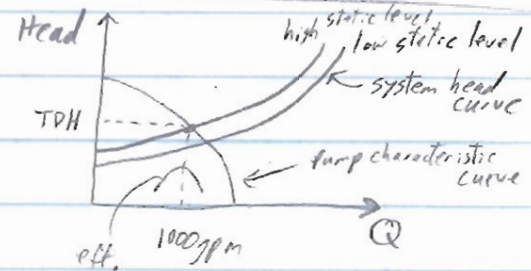 Head
high static level
low static level
system head
curve
TDH
pump characteristic
curve
eff.
1000gpm
Q